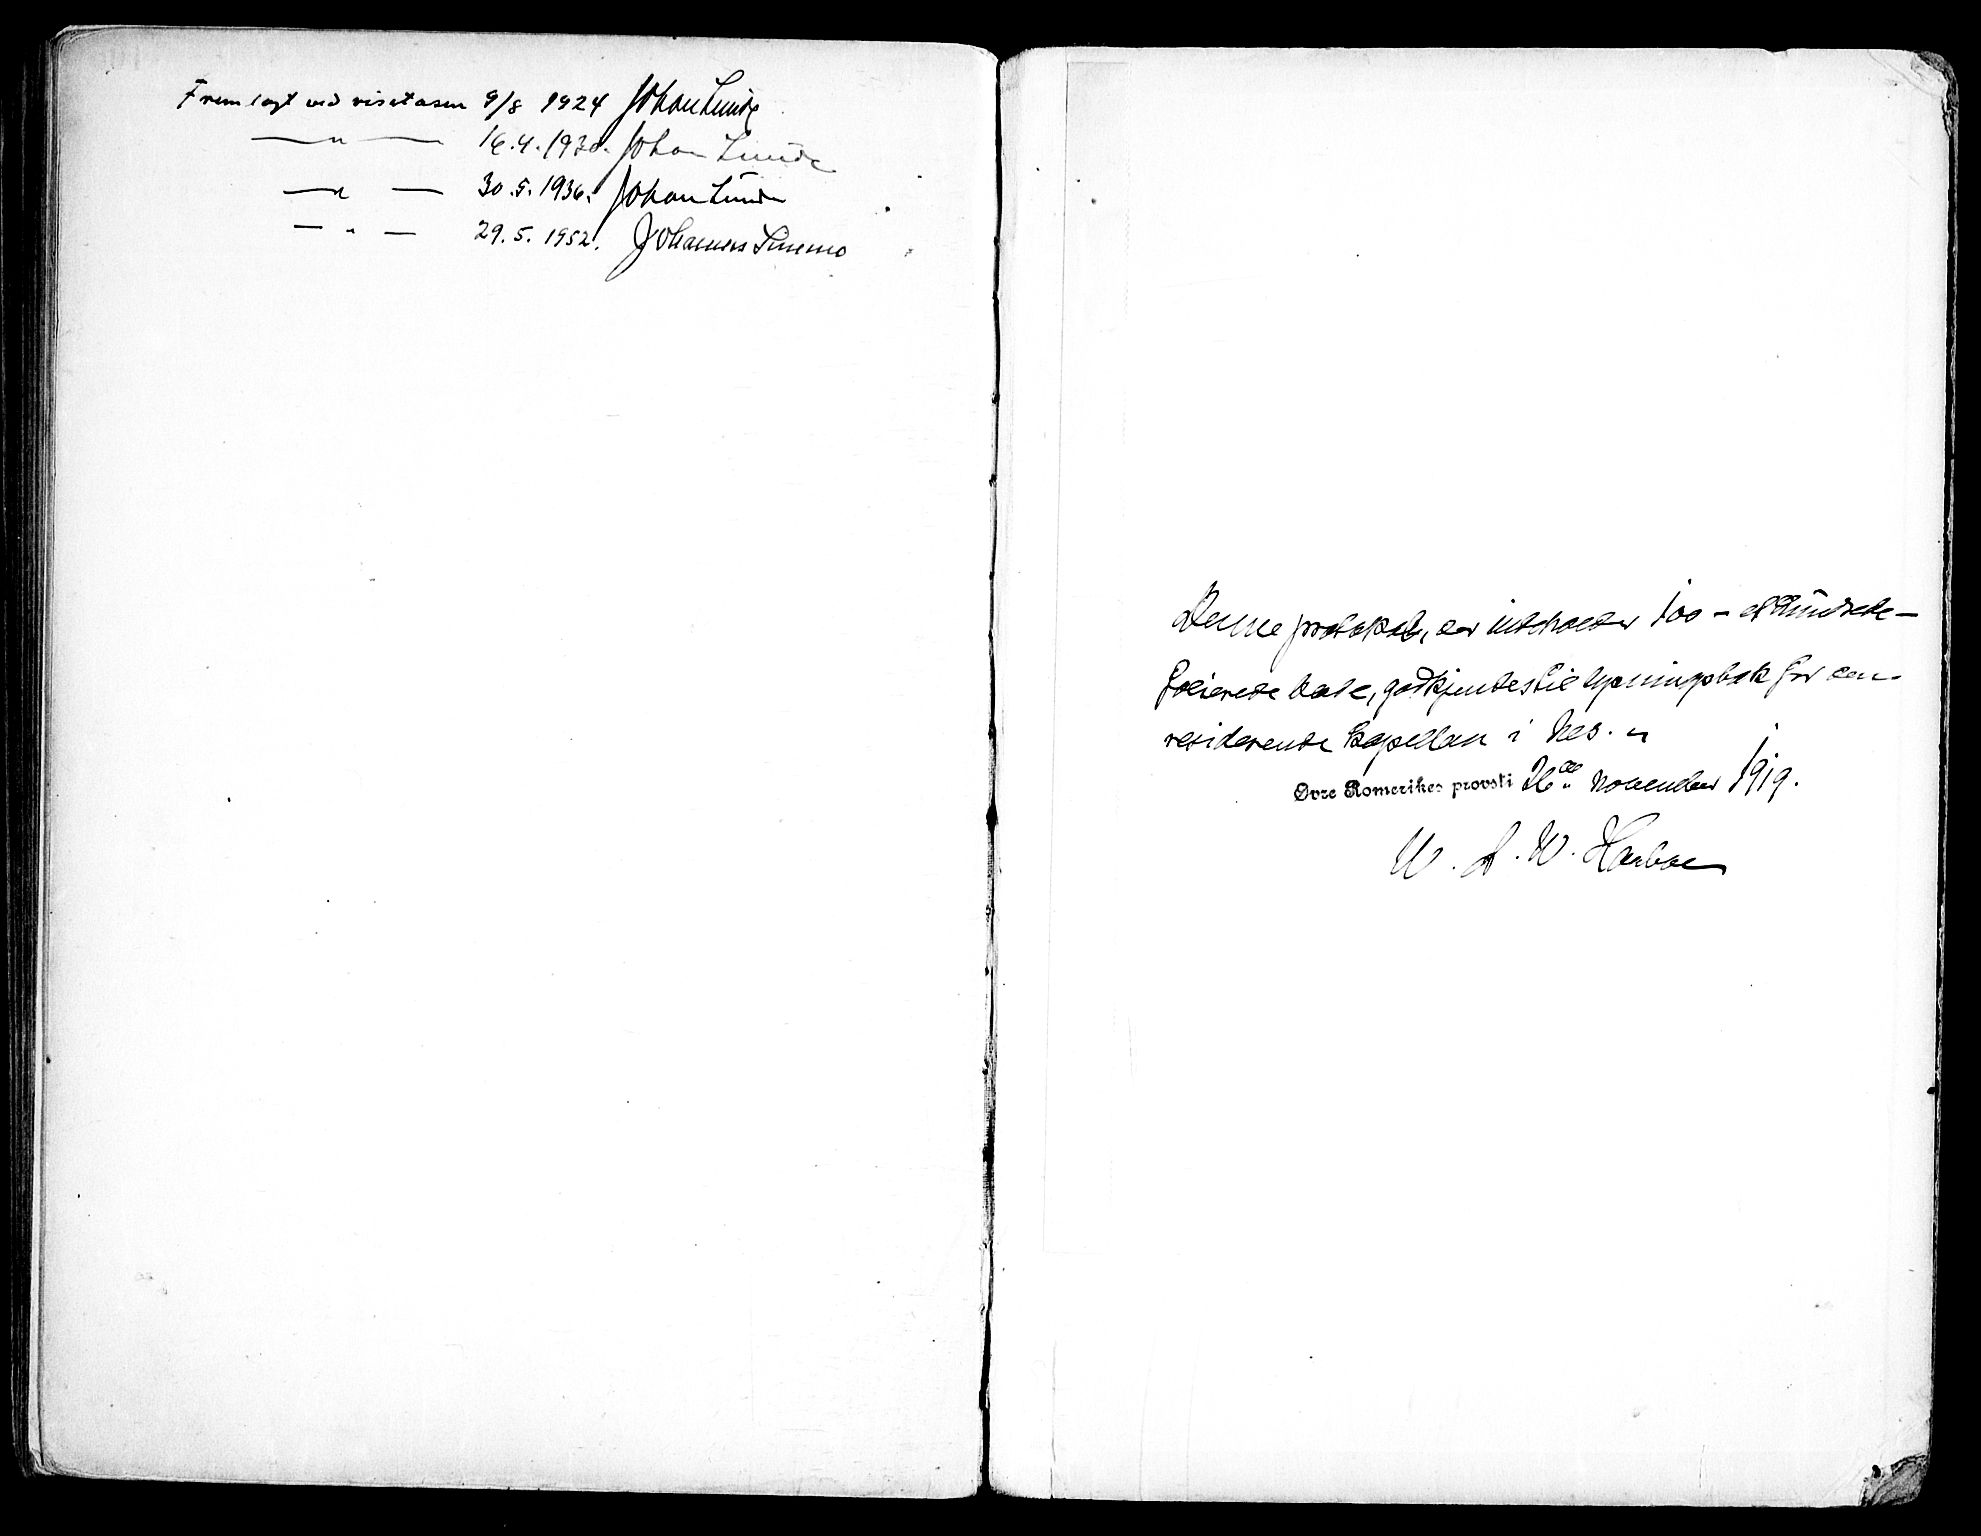 Fremlagt ved visitasen 9/8 1924 Johan Lunde
— " — 16.4.1930. Johan Lunde
— " — 30.5.1936. Johan Lunde
— " — 29.5.1952. Johannes Smemo
Denne protokol, der indeholder 100 - et hundrede -
folierede blade, godkjendes til lysningsbok for den
residerende kapellan i Nes. "
Øvre Romerikes provsti 26de november 1919.
W. A. W. Harboe